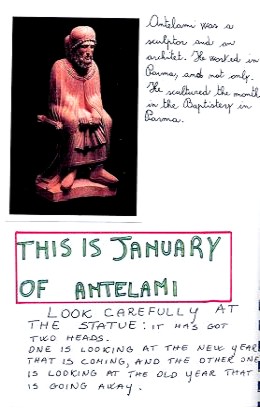 Antelami was a
sculptor and an
architet. He worked in
Parma, and not only.
He scultured the month
in the Baptistery in
Parma.
THIS IS JANUARY
OF ANTELAMI
LOOK CAREFULLY AT
THE STATUE: IT HAS GOT
TWO HEADS.
ONE IS LOOKING AT THE NEW YEAR
THAT IS COMING, AND THE OTHER ONE
IS LOOKING AT THE OLD YEAR THAT
IS GOING AWAY.